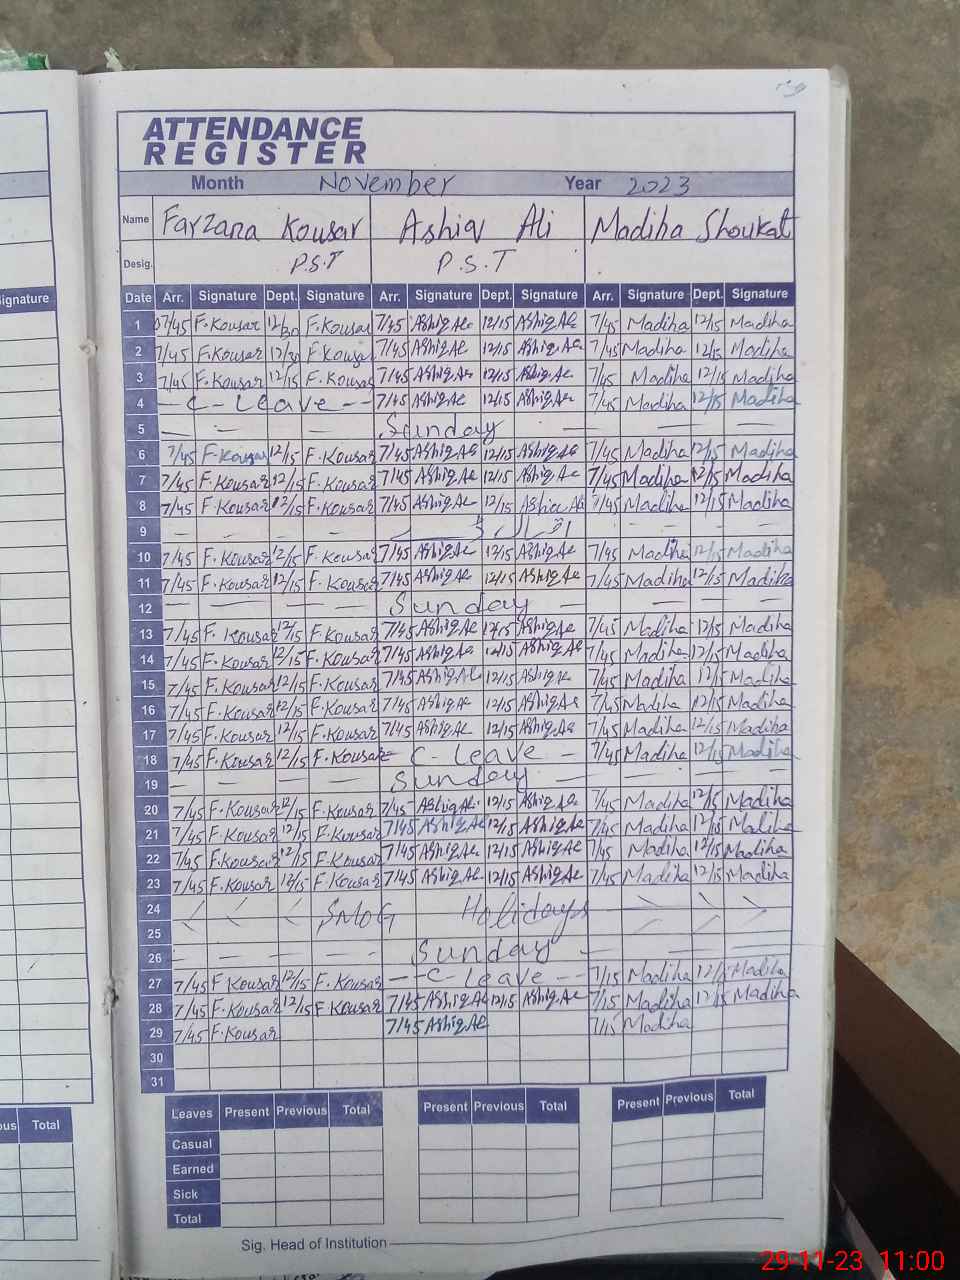 ATTENDANCE
REGISTER
Month November Year 2023
Name Farzana Kousar Ashiq Ali Madiha Shoukat
Desig. P.S.T P.S.T
Signature
Date Arr. Signature Dept. Signature Arr. Signature Dept. Signature Arr. Signature Dept. Signature
1 07/45 F.Kousar 12/30 F.Kousar 7/45 Ashiq Ae 12/15 Ashiq Ae 7/45 Madiha 12/15 Madiha
2 7/45 F.Kousar 12/30 F.Kousar 7/45 Ashiq Ae 12/15 Ashiq Ae 7/45 Madiha 12/15 Madiha
3 7/45 F.Kousar 12/15 F.Kousar 7/45 Ashiq Ae 12/15 Ashiq Ae 7/45 Madiha 12/15 Madiha
4 - C - Leave - - 7/45 Ashiq Ae 12/15 Ashiq Ae 7/45 Madiha 12/15 Madiha
5 Sunday
6 7/45 F.Kousar 12/15 F.Kousar 7/45 Ashiq Ae 12/15 Ashiq Ae 7/45 Madiha 12/15 Madiha
7 7/45 F.Kousar 12/15 F.Kousar 7/45 Ashiq Ae 12/15 Ashiq Ae 7/45 Madiha 12/15 Madiha
8 7/45 F.Kousar 12/15 F.Kousar 7/45 Ashiq Ae 12/15 Ashiq Ali 7/45 Madiha 12/15 Madiha
9
10 7/45 F.Kousar 12/15 F.Kousar 7/45 Ashiq Ae 12/15 Ashiq Ae 7/45 Madiha 12/15 Madiha
11 7/45 F.Kousar 12/15 F.Kousar 7/45 Ashiq Ae 12/15 Ashiq Ae 7/45 Madiha 12/15 Madiha
12 Sunday
13 7/45 F. Kousar 12/15 F.Kousar 7/45 Ashiq Ae 12/15 Ashiq Ae 7/45 Madiha 12/15 Madiha
14 7/45 F.Kousar 12/15 F.Kousar 7/45 Ashiq Ae 12/15 Ashiq Ae 7/45 Madiha 12/15 Madiha
15 7/45 F.Kousar 12/15 F.Kousar 7/45 Ashiq Ae 12/15 Ashiq Ae 7/45 Madiha 12/15 Madiha
16 7/45 F.Kousar 12/15 F.Kousar 7/45 Ashiq Ae 12/15 Ashiq Ae 7/45 Madiha 12/15 Madiha
17 7/45 F.Kousar 12/15 F.Kousar 7/45 Ashiq Ae 12/15 Ashiq Ae 7/45 Madiha 12/15 Madiha
18 7/45 F.Kousar 12/15 F.Kousar - C - Leave - 7/45 Madiha 12/15 Madiha
19 Sunday
20 7/45 F.Kousar 12/15 F.Kousar 7/45 Ashiq Ae 12/15 Ashiq Ae 7/45 Madiha 12/15 Madiha
21 7/45 F.Kousar 12/15 F.Kousar 7/45 Ashiq Ae 12/15 Ashiq Ae 7/45 Madiha 12/15 Madiha
22 7/45 F.Kousar 12/15 F.Kousar 7/45 Ashiq Ae 12/15 Ashiq Ae 7/45 Madiha 12/15 Madiha
23 7/45 F.Kousar 12/15 F.Kousar 7/45 Ashiq Ae 12/15 Ashiq Ae 7/45 Madiha 12/15 Madiha
24 SMOG Holidays
25
26 Sunday
27 7/45 F Kousar 12/15 F.Kousar - - C - Leave - - 7/15 Madiha 12/15 Madiha
28 7/45 F.Kousar 12/15 F Kousar 7/45 Ashiq Ae 12/15 Ashiq Ae 7/15 Madiha 12/15 Madiha
29 7/45 F.Kousar 7/45 Ashiq Ae 7/15 Madiha
30
31
Total
Leaves Present Previous Total Present Previous Total Present Previous Total
Casual
Earned
Sick
Total
Sig. Head of Institution
29-11-23 11:00